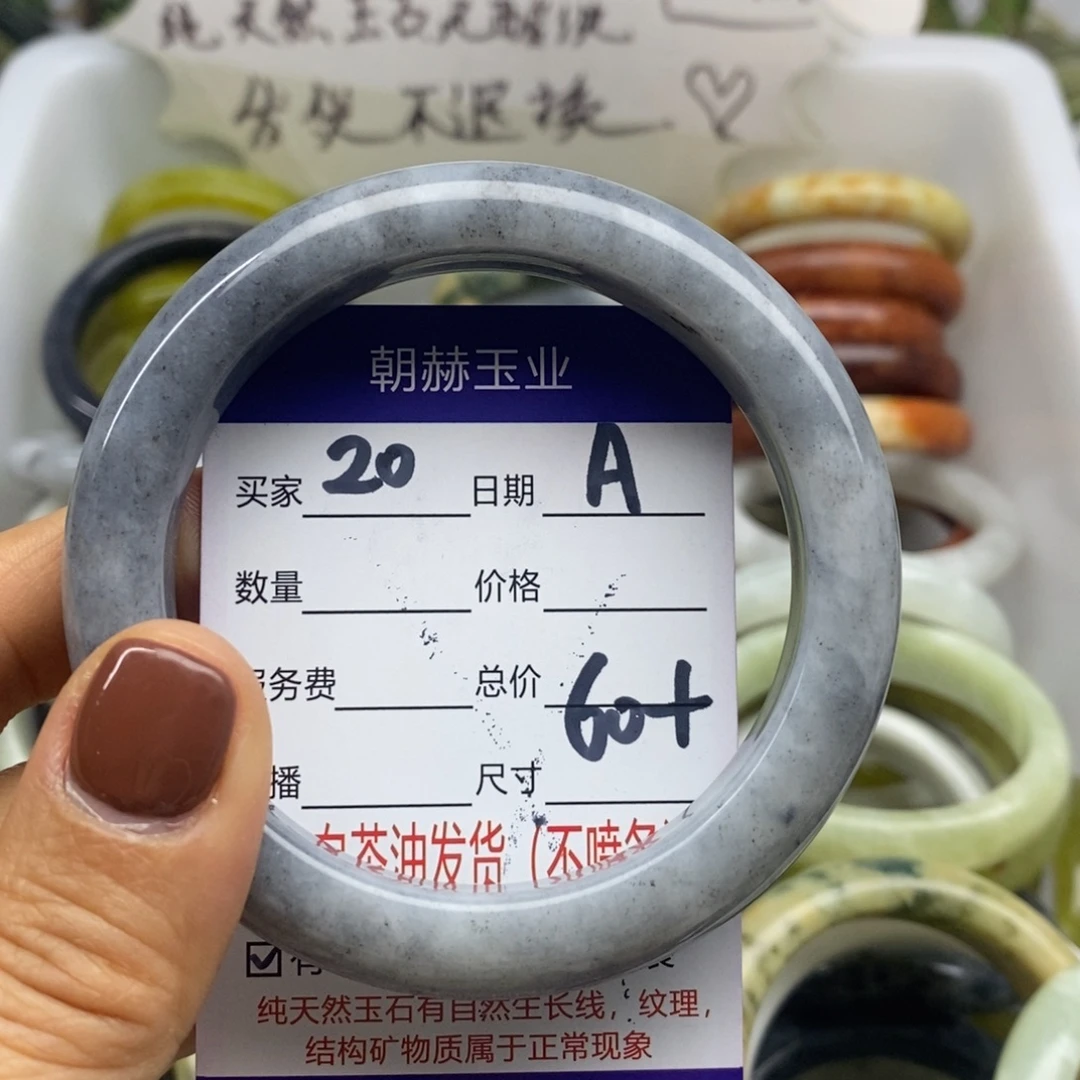 纯天然玉石无酸洗
售出不退换
朝赫玉业
买家 20 日期 A
数量 价格
服务费 总价 60+
播 尺寸
白茶油发货（不喷
有
纯天然玉石有自然生长线，纹理，
结构矿物质属于正常现象